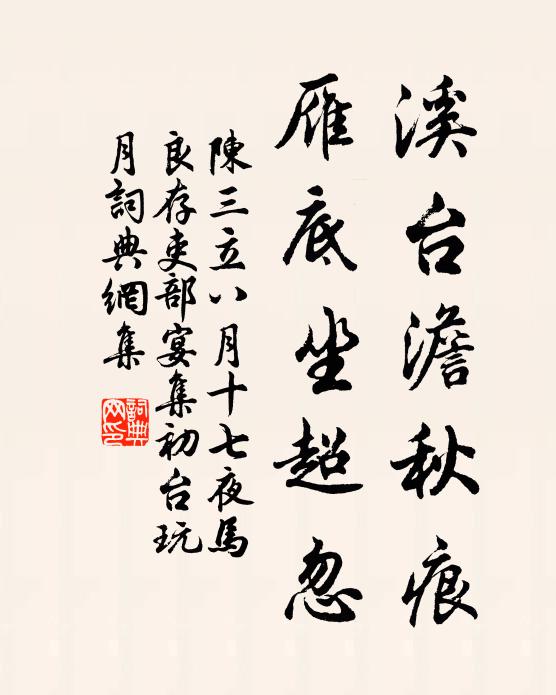 溪台澹秋痕
雁底坐超忽
陳三立八月十七夜馬
良存吏部宴集初台玩
月詞典網集
詞典
网印